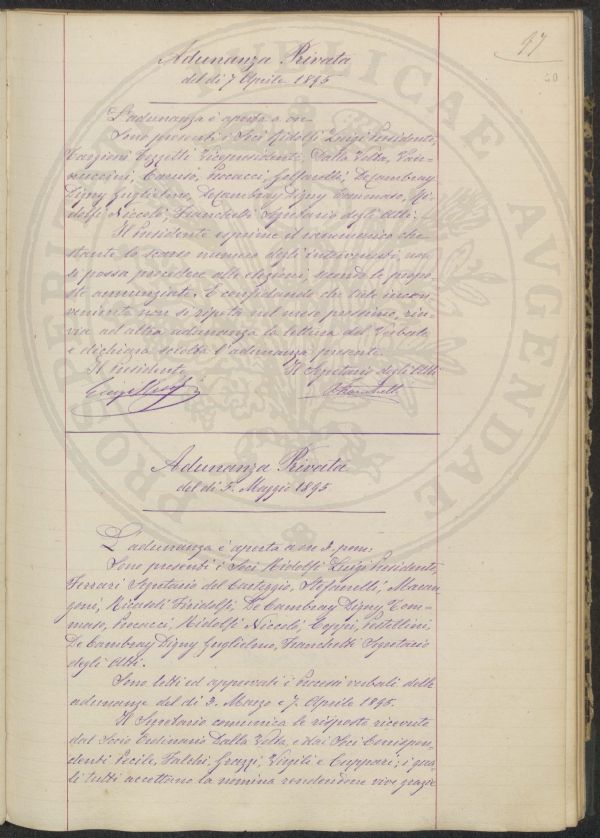 47
50
Adunanza Privata
del dì 7 Aprile 1895
L'adunanza è aperta a ore
Sono presenti i Soci Ridolfi Luigi Presidente,
Targioni Tozzetti Vicepresidente, Dalla Volta, Van-
nuccini, Caruso, Pucci, Golfarelli, DeCambray
Digny Guglielmo, DeCambray Digny Tommaso, Ri-
dolfi Niccolò, Franchetti Segretario degli Atti.
Il Presidente esprime il rammarico che
stante lo scarso numero degli intervenuti, non
si possa procedere alle elezioni, secondo le propo-
ste annunziate. E confidando che tale incon-
veniente non si ripeta nel mese prossimo, rin-
via ad altra adunanza la lettura del Verbale,
e dichiara sciolta l'adunanza presente.
Il Presidente Il Segretario degli Atti
Luigi Ridolfi AFranchetti
Adunanza Privata
del dì 5. Maggio 1895
L'adunanza è aperta a ore 2. pom:
Sono presenti i Soci Ridolfi Luigi Presidente,
Ferrari Segretario del Carteggio, Stefanelli, Maran-
goni, Ricasoli Firidolfi, De Cambray Digny Tom-
maso, Pucci, Ridolfi Niccolò, Pestellini
De Cambray Digny Guglielmo, Franchetti Segretario
degli Atti.
Sono letti ed approvati i Processi verbali delle
adunanze del dì 3. Marzo e 7. Aprile 1895.
Il Segretario comunica le risposte ricevute
dal Socio Ordinario Dalla Volta, e dai Soci Corrispon-
denti Pecile, Falchi, Grazzi, Virgili e Cuppari; i qua-
li tutti accettano la nomina rendendone vive grazie
PROSPERITATI PUBLICAE AUGENDAE